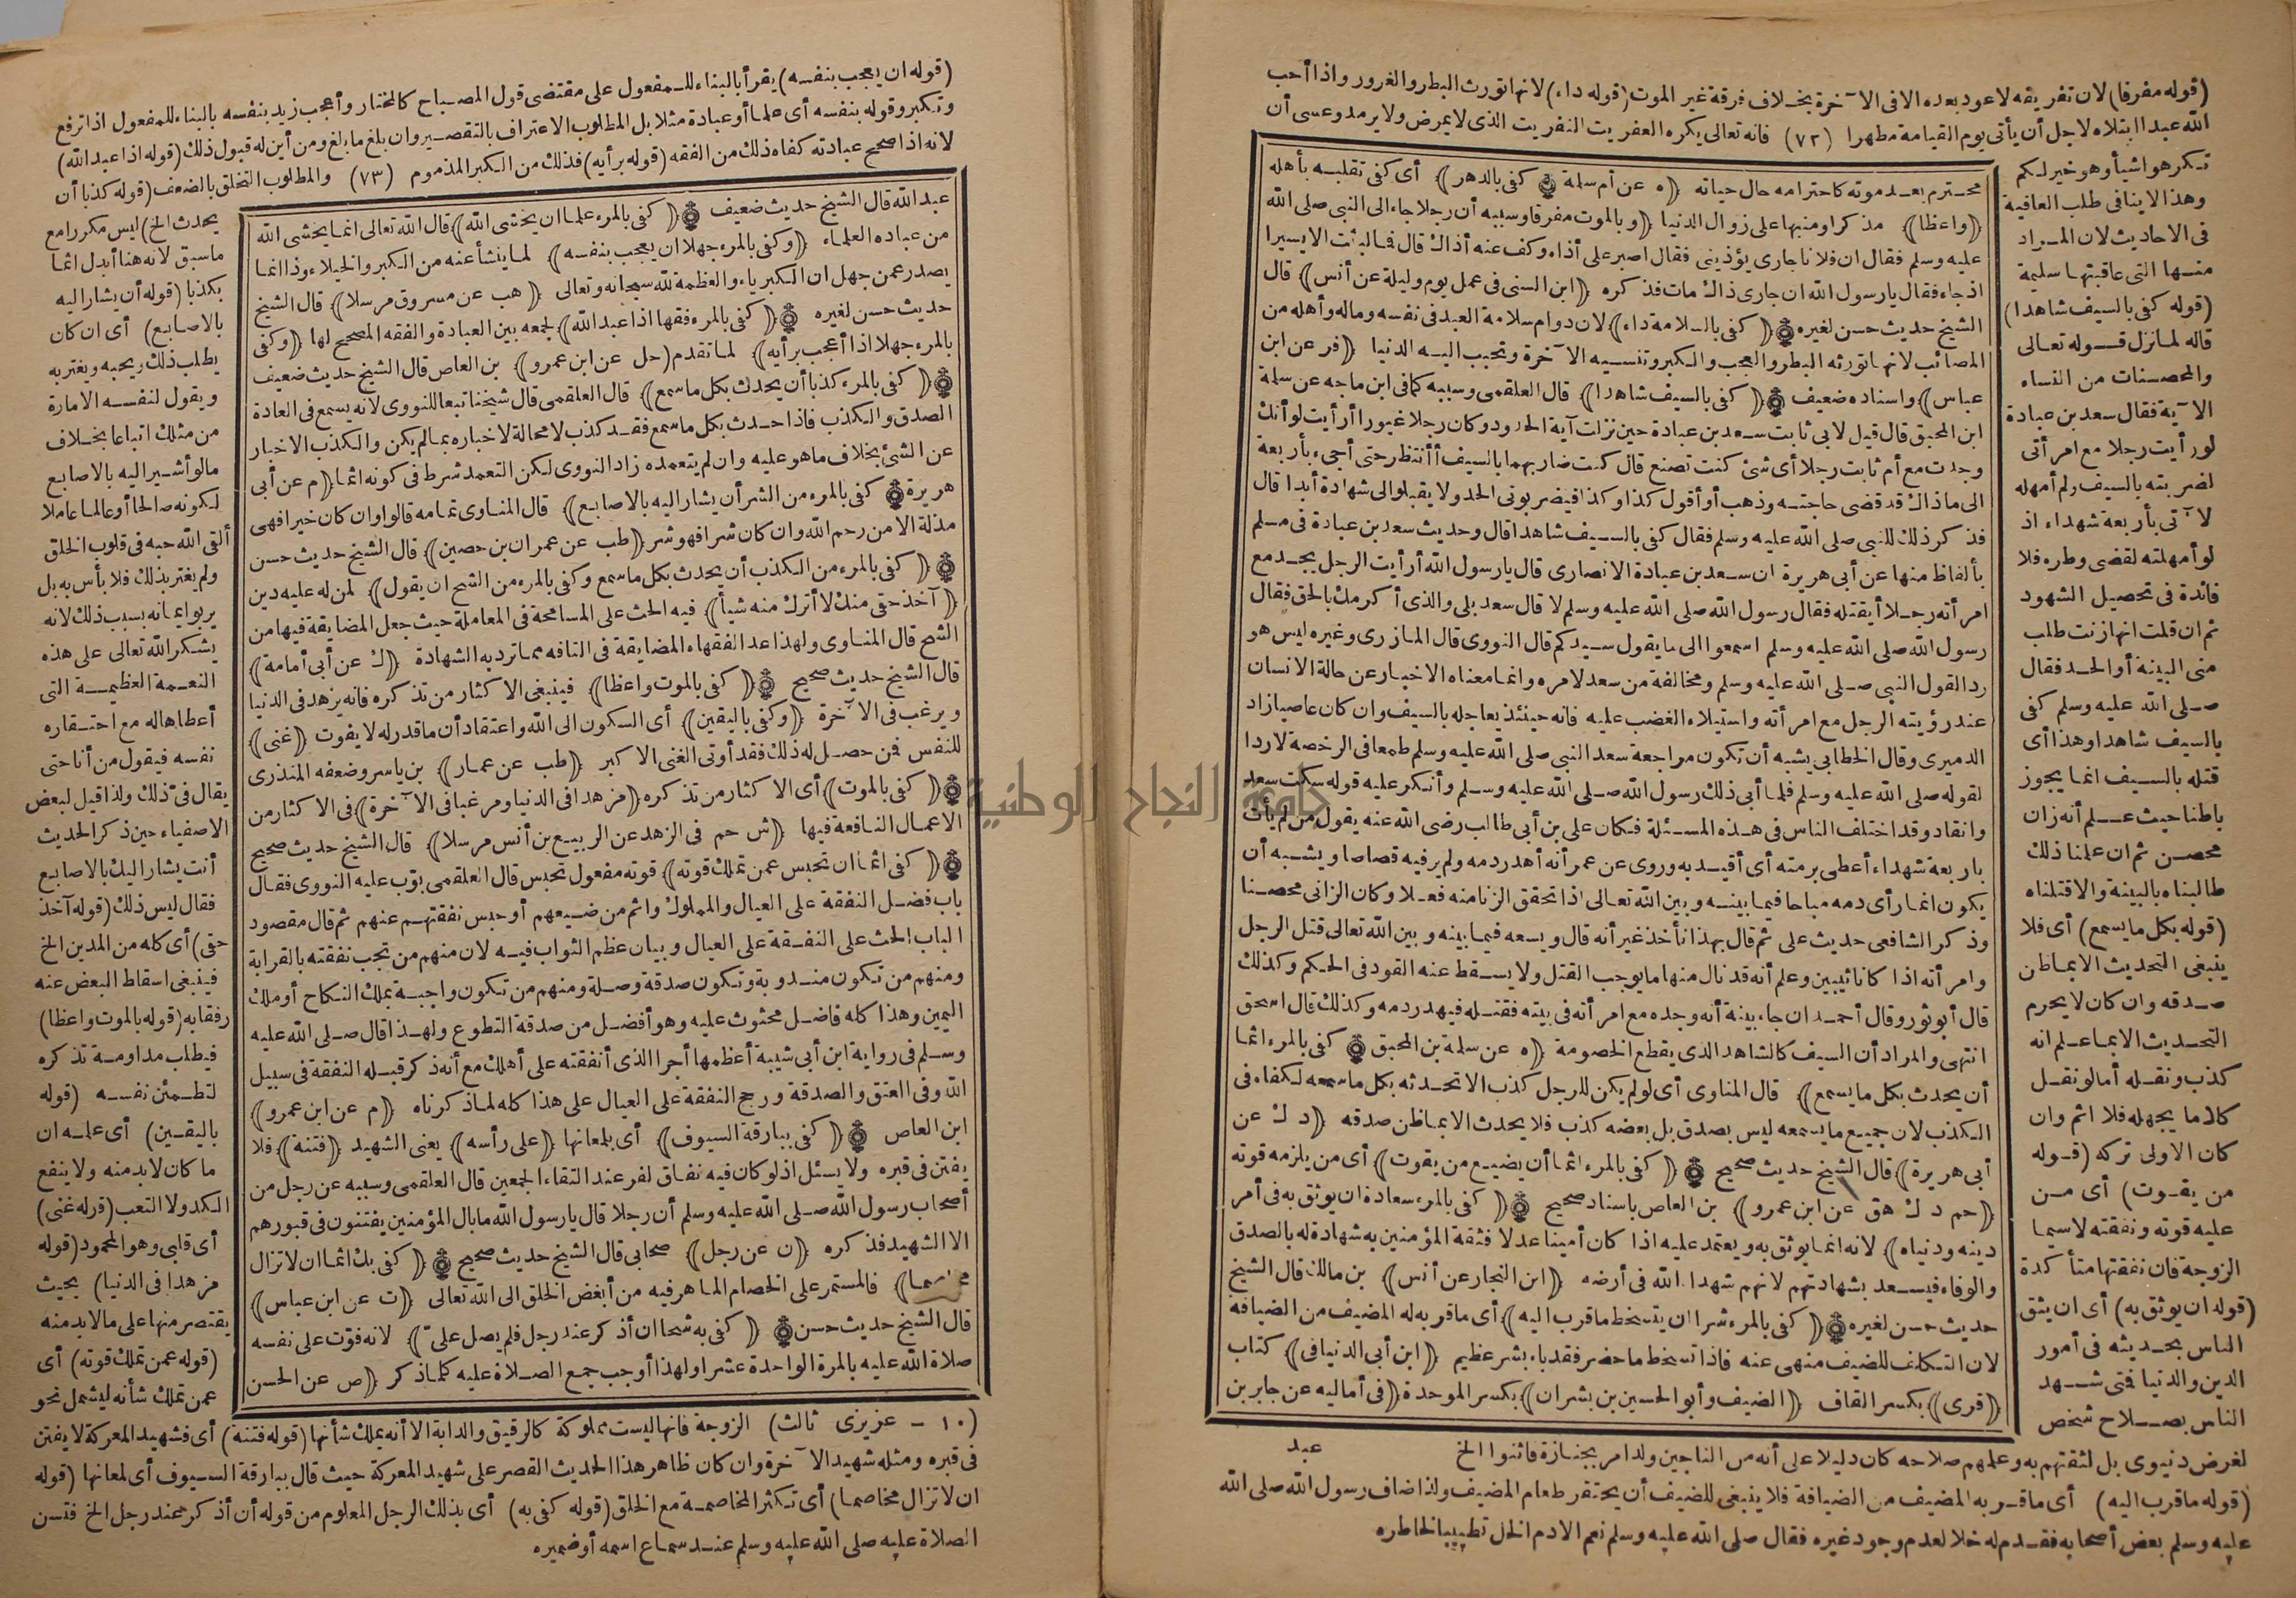 (قوله مفرقا) لان تفريقه لا عود بعده الا فى الا خرة بخلاف فرقة غير الموت (قوله داء) لانها تورث البطر والغرور واذا أحب
الله عبدا ابتلاه لاجل أن يأتى يوم القيامة مطهرا (٧٢) فانه تعالى يكره العفريت النفريت الذى لا يمرض ولا يرمد وعسى أن
تكرهوا شيأ وهو خير لكم
وهذا لا ينافى طلب العافية
فى الاحاديث لان المراد
منها التى عاقبتها سليمة
(قوله كفى بالسيف شاهدا)
قاله لما نزل قوله تعالى
والمحصنات من النساء
الا ية فقال سعد بن عبادة
لو رأيت رجلا مع امرأتى
لضربته بالسيف ولم أمهله
لا تى بأربعة شهداء اذ
لو أمهلته لقضى وطره فلا
فائدة فى تحصيل الشهود
ثم ان قلت انها زنت طلب
منى البينة أو الحد فقال
صلى الله عليه وسلم كفى
بالسيف شاهدا وهذا أى
قتله بالسيف انما يجوز
باطنا حيث علم أنه زان
محصن ثم ان علمنا ذلك
طالبناه بالبينة والا قتلناه
(قوله بكل ما يسمع) أى فلا
ينبغى التحديث الا بما ظن
صدقه وان كان لا يحرم
التحديث الا بما علم انه
كذب ونقله أما لو نقل
كلاما يجهله فلا اثم وان
كان الاولى تركه (قوله
من يقوت) أى من
عليه قوته ونفقته لا سيما
الزوجة فان نفقتها متأكدة
(قوله ان يوثق به) أى ان يثق
الناس بحديثه فى أمور
الدين والدنيا فتى شهد
الناس بصلاح شخص
محترم بعد موته كاحترامه حال حياته (ه عن أم سلمة) كفى بالدهر) أى كفى تقلبه بأهله
(واعظا) مذكرا ومنبها على زوال الدنيا (وبالموت مفرقا) وسببه أن رجلا جاء الى النبى صلى الله
عليه وسلم فقال ان فلانا جارى يؤذينى فقال اصبر على أذاه وكف عنه أذاك قال فما لبثت الا يسيرا
اذ جاء فقال يا رسول الله ان جارى ذاك مات فذكره (ابن السنى فى عمل يوم وليلة عن أنس) قال
الشيخ حديث حسن لغيره (كفى بالسلامة داء) لان دوام سلامة العبد فى نفسه وماله وأهله من
المصائب لانها تورثه البطر والعجب والكبر وتنسيه الا خرة وتحبب اليه الدنيا (فر عن ابن
عباس) واسناده ضعيف (كفى بالسيف شاهدا) قال العلقمى وسببه كما فى ابن ماجه عن سلمة
ابن المحبق قال قيل لابى ثابت سعد بن عبادة حين نزلت آية الحدود وكان رجلا غيورا أرأيت لو أنك
وجدت مع أم ثابت رجلا أى شئ كنت تصنع قال كنت ضاربهما بالسيف أأنتظر حتى أجىء بأربعة
الى ما ذاك قد قضى حاجته وذهب أو أقول كذا وكذا فيضربونى الحد ولا يقبلوا لى شهادة أبدا قال
فذكر ذلك للنبى صلى الله عليه وسلم فقال كفى بالسيف شاهدا قال وحديث سعد بن عبادة فى مسلم
بألفاظ منها عن أبى هريرة ان سعد بن عبادة الانصارى قال يا رسول الله أرأيت الرجل يجد مع
امرأته رجلا أيقتله فقال رسول الله صلى الله عليه وسلم لا قال سعد بلى والذى أكرمك بالحق فقال
رسول الله صلى الله عليه وسلم اسمعوا الى ما يقول سيدكم قال النووى قال المازرى وغيره ليس هو
ردا لقول النبى صلى الله عليه وسلم ومخالفة من سعد لامره وانما معناه الاخبار عن حالة الانسان
عند رؤيته الرجل مع امرأته واستيلاء الغضب عليه فانه حينئذ يعاجله بالسيف وان كان عاصيا زاد
الدميرى وقال الخطابى يشبه أن تكون مراجعة سعد النبى صلى الله عليه وسلم طمعا فى الرخصة لا ردا
لقوله صلى الله عليه وسلم فلما أبى ذلك رسول الله صلى الله عليه وسلم وأنكر عليه قوله سكت سعد
وانقاد وقد اختلف الناس فى هذه المسئلة فكان على بن أبى طالب رضى الله عنه يقول من لم يأت
باربعة شهداء أعطى برمته أى أقيد به وروى عن عمر أنه أهدر دمه ولم ير فيه قصاصا ويشبه أن
يكون انما رأى دمه مباحا فيما بينه وبين الله تعالى اذا تحقق الزنا منه فعلا وكان الزانى محصنا
وذكر الشافعى حديث على ثم قال بهذا نأخذ غير أنه قال ويسعه فيما بينه وبين الله تعالى قتل الرجل
وامرأته اذا كانا ثيبين وعلم أنه قد نال منها ما يوجب القتل ولا يسقط عنه القود فى الحكم وكذلك
قال أبو ثور وقال أحمد ان جاء ببينة أنه وجده مع امرأته فى بيته فقتله فيهدر دمه وكذلك قال اسحق
انتهى والمراد أن السيف كالشاهد الذى يقطع الخصومة (ه عن سلمة بن المحبق) كفى بالمرء اثما
أن يحدث بكل ما يسمع) قال المناوى أى لو لم يكن للرجل كذب الا تحدثه بكل ما سمعه لكفاه فى
الكذب لان جميع ما يسمعه ليس بصدق بل بعضه كذب فلا يحدث الا بما ظن صدقه (د ك عن
أبى هريرة) قال الشيخ حديث صحيح (كفى بالمرء اثما أن يضيع من يقوت) أى من يلزمه قوته
(حم د ك هق عن ابن عمرو) بن العاص باسناد صحيح (كفى بالمرء سعادة ان يوثق به فى أمر
دينه ودنياه) لانه انما يوثق به ويعتمد عليه اذا كان أمينا عدلا فثقة المؤمنين به شهادة له بالصدق
والوفاء فيسعد بشهادتهم لانهم شهدا الله فى أرضه (ابن النجار عن أنس) بن مالك قال الشيخ
حديث حسن لغيره (كفى بالمرء شرا ان يتسخط ما قرب اليه) أى ما قربه له المضيف من الضيافة
لان التكلف للضيف منهى عنه فاذا تسخط ما حضر فقد باء بشر عظيم (ابن أبى الدنيا فى) كتاب
(قرى) بكسر القاف (الضيف وأبو الحسين بن بشران) بكسر الموحدة (فى أماليه عن جابر بن
عبد
لغرض دنيوى بل لثقتهم به وعلمهم صلاحه كان دليلا على أنه من الناجين ولذا مر بجنازة فاثنوا الخ
(قوله ما قرب اليه) أى ما قربه المضيف من الضيافة فلا ينبغى للضيف أن يحتقر طعام المضيف ولذا ضاف رسول الله صلى الله
عليه وسلم بعض أصحابه فقدم له خلا لعدم وجود غيره فقال صلى الله عليه وسلم نعم الادم الخل تطييبا لخاطره
(قوله ان يعجب بنفسه) يقرأ بالبناء للمفعول على مقتضى قول المصباح كالمختار وأعجب زيد بنفسه بالبناء للمفعول اذا ترفع
وتكبر وقوله بنفسه أى علما أو عبادة مثلا بل المطلوب الاعتراف بالتقصير وان بلغ ما بلغ ومن أين له قبول ذلك (قوله اذا عبد الله)
لانه اذا صحح عبادته كفاه ذلك من الفقه (قوله برأيه) فذلك من الكبر المذموم (٧٣) والمطلوب التخلق بالضعف (قوله كذبا أن
عبد الله قال الشيخ حديث ضعيف (كفى بالمرء علما ان يخشى الله) قال الله تعالى انما يخشى الله
من عباده العلماء (وكفى بالمرء جهلا ان يعجب بنفسه) لما ينشأ عنه من الكبر والخيلاء وذا انما
يصدر عمن جهل ان الكبرياء والعظمة لله سبحانه وتعالى (هب عن مسروق مرسلا) قال الشيخ
حديث حسن لغيره (كفى بالمرء فقها اذا عبد الله) لجمعه بين العبادة والفقه المصحح لها (وكفى
بالمرء جهلا اذا أعجب برأيه) لما تقدم (حل عن ابن عمرو) بن العاص قال الشيخ حديث ضعيف
(كفى بالمرء كذبا أن يحدث بكل ما سمع) قال العلقمى قال شيخنا تبعا للنووى لانه يسمع فى العادة
الصدق والكذب فاذا حدث بكل ما سمع فقد كذب لا محالة لاخباره بما لم يكن والكذب الاخبار
عن الشئ بخلاف ما هو عليه وان لم يتعمده زاد النووى لكن التعمد شرط فى كونه اثما (م عن أبى
هريرة) كفى بالمرء من الشر أن يشار اليه بالاصابع) قال المناوى تمامه قالوا وان كان خيرا فهى
مذلة الا من رحم الله وان كان شرا فهو شر (طب عن عمران بن حصين) قال الشيخ حديث حسن
(كفى بالمرء من الكذب أن يحدث بكل ما سمع وكفى بالمرء من الشح ان يقول) لمن له عليه دين
(آخذ حقى منك لا أترك منه شيأ) فيه الحث على المسامحة فى المعاملة حيث جعل المضايقة فيها من
الشح قال المناوى ولهذا عد الفقهاء المضايقة فى التافه مما ترد به الشهادة (ك عن أبى أمامة)
قال الشيخ حديث صحيح (كفى بالموت واعظا) فينبغى الاكثار من تذكره فانه يزهد فى الدنيا
ويرغب فى الا خرة (وكفى باليقين) أى السكون الى الله واعتقاد أن ما قدر له لا يفوت (غنى)
للنفس فمن حصل له ذلك فقد أوتى الغنى الاكبر (طب عن عمار) بن ياسر وضعفه المنذرى
(كفى بالموت) أى الاكثار من تذكره (مزهدا فى الدنيا ومرغبا فى الا خرة) فى الاكثار من
الاعمال النافعة فيها (ش حم فى الزهد عن الربيع بن أنس مرسلا) قال الشيخ حديث صحيح
(كفى اثما ان تحبس عمن تملك قوته) قوته مفعول تحبس قال العلقمى بوّب عليه النووى فقال
باب فضل النفقة على العيال والمملوك واثم من ضيعهم أو حبس نفقتهم عنهم ثم قال مقصود
الباب الحث على النفقة على العيال وبيان عظم الثواب فيه لان منهم من تجب نفقته بالقرابة
ومنهم من تكون مندوبة وتكون صدقة وصلة ومنهم من تكون واجبة بملك النكاح أو ملك
اليمين وهذا كله فاضل محثوث عليه وهو أفضل من صدقة التطوع ولهذا قال صلى الله عليه
وسلم فى رواية ابن أبى شيبة أعظمها أجرا الذى أنفقته على أهلك مع أنه ذكر قبله النفقة فى سبيل
الله وفى العتق والصدقة ورجح النفقة على العيال على هذا كله لما ذكرناه (م عن ابن عمرو)
ابن العاص (كفى ببارقة السيوف) أى بلمعانها (على رأسه) يعنى الشهيد (فتنة) فلا
يفتن فى قبره ولا يسئل اذ لو كان فيه نفاق لفر عند التقاء الجمعين قال العلقمى وسببه عن رجل من
أصحاب رسول الله صلى الله عليه وسلم أن رجلا قال يا رسول الله ما بال المؤمنين يفتنون فى قبورهم
الا الشهيد فذكره (ن عن رجل) صحابى قال الشيخ حديث صحيح (كفى بك اثما ان لا تزال
مخاصما) فالمستمر على الخصام الماهر فيه من أبغض الخلق الى الله تعالى (ت عن ابن عباس)
قال الشيخ حديث حسن (كفى به شحا ان أذكر عند رجل فلم يصل علىّ) لانه فوّت على نفسه
صلاة الله عليه بالمرة الواحدة عشرا ولهذا أوجب جمع الصلاة عليه كلما ذكر (ص عن الحسن
يحدث الخ) ليس مكررا مع
ما سبق لانه هنا أبدل اثما
بكذبا (قوله أن يشار اليه
بالاصابع) أى ان كان
يطلب ذلك ويحبه ويغتر به
ويقول لنفسه الامارة
من مثلك اتباعا بخلاف
ما لو أشير اليه بالاصابع
لكونه صالحا أو عالما عاملا
ألقى الله حبه فى قلوب الخلق
ولم يغتر بذلك فلا بأس به بل
يربو ايمانه بسبب ذلك لانه
يشكر الله تعالى على هذه
النعمة العظيمة التى
أعطاها له مع احتقاره
نفسه فيقول من أنا حتى
يقال فىّ ذلك ولذا قيل لبعض
الاصفياء حين ذكر الحديث
أنت يشار اليك بالاصابع
فقال ليس ذلك (قوله آخذ
حقى) أى كله من المدين الخ
فينبغى اسقاط البعض عنه
رفقا به (قوله بالموت واعظا)
فيطلب مداومة تذكره
لتطمئن نفسه (قوله
باليقين) أى علمه ان
ما كان لابد منه ولا ينفع
الكد ولا التعب (قوله غنى)
أى قلبى وهو المحمود (قوله
مزهدا فى الدنيا) بحيث
يقتصر منها على ما لابد منه
(قوله عمن تملك قوته) أى
عمن تملك شأنه ليشمل نحو
(١٠ - عزيزى ثالث) الزوجة فانها ليست مملوكة كالرقيق والدابة الا أنه يملك شأنها (قوله فتنة) أى فشهيد المعركة لا يفتن
فى قبره ومثله شهيد الا خرة وان كان ظاهر هذا الحديث القصر على شهيد المعركة حيث قال ببارقة السيوف أى لمعانها (قوله
ان لا تزال مخاصما) أى تكثر المخاصمة مع الخلق (قوله كفى به) أى بذلك الرجل المعلوم من قوله أن أذكر عند رجل الخ فتسن
الصلاة عليه صلى الله عليه وسلم عند سماع اسمه أو ضميره
جامعة النجاح الوطنية